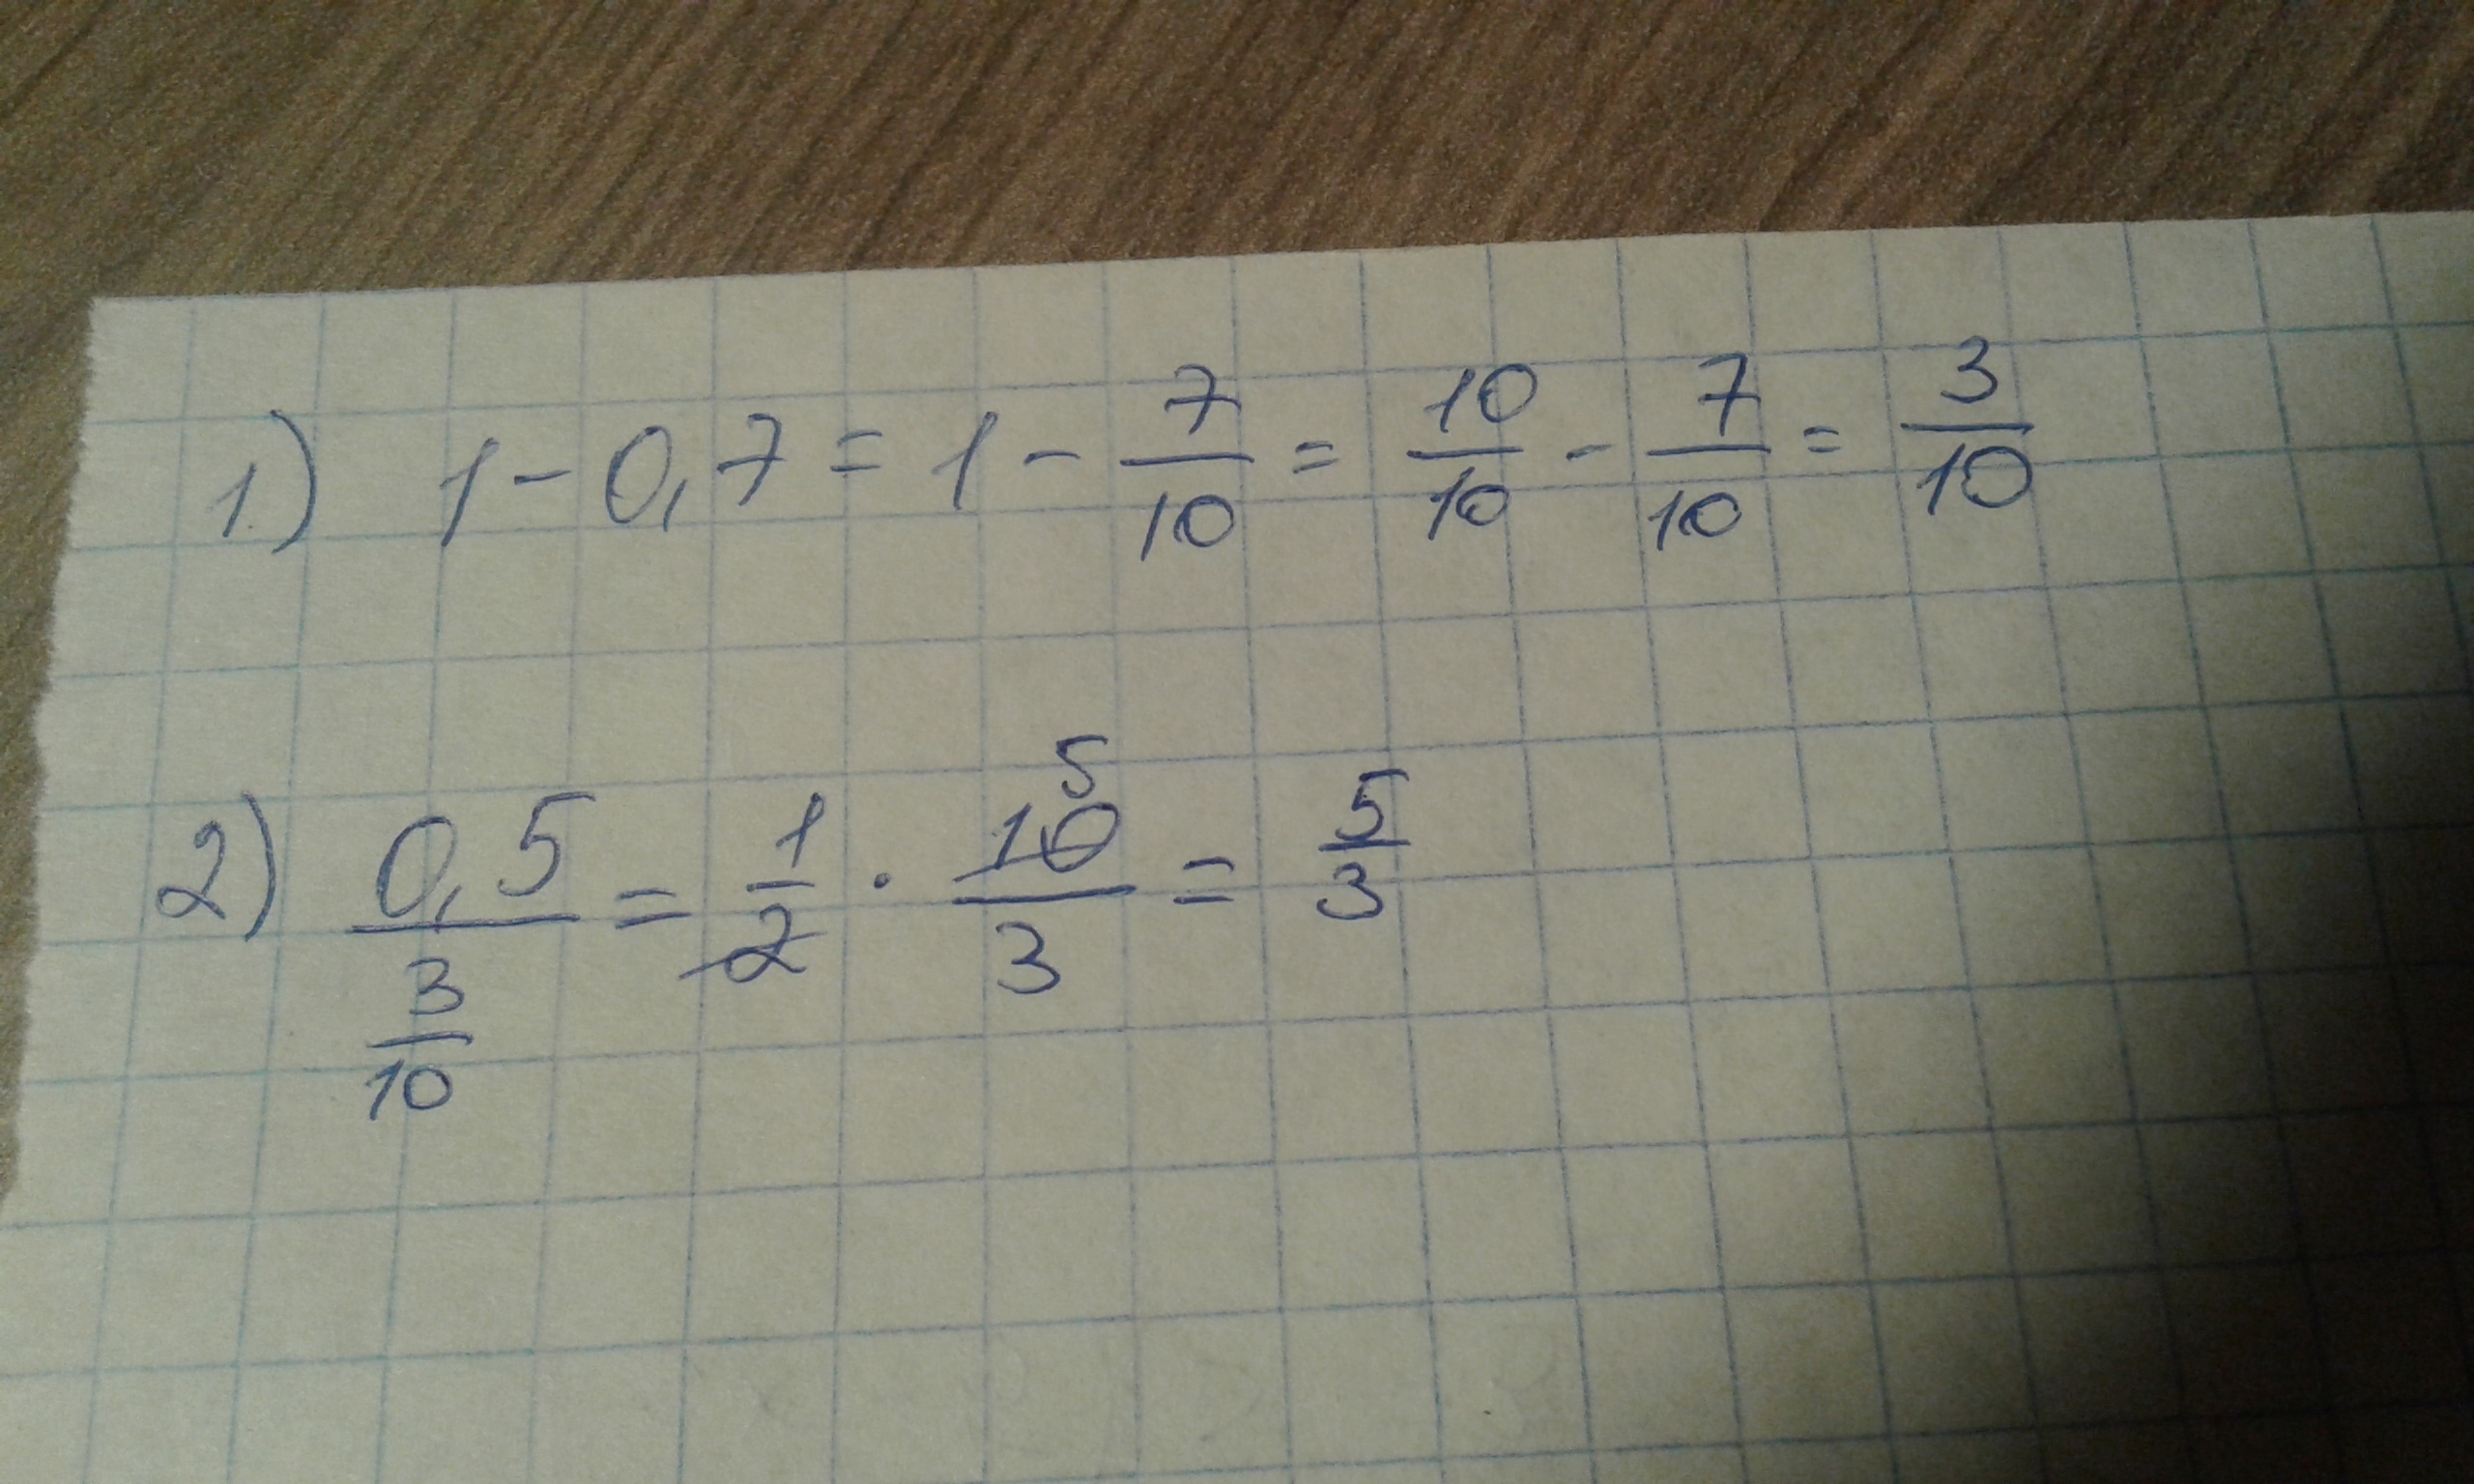 1) 1 - 0,7 = 1 - 7/10 = 10/10 - 7/10 = 3/10
2) 0,5/(3/10) = 1/2 · 10/3 = 5/3
5